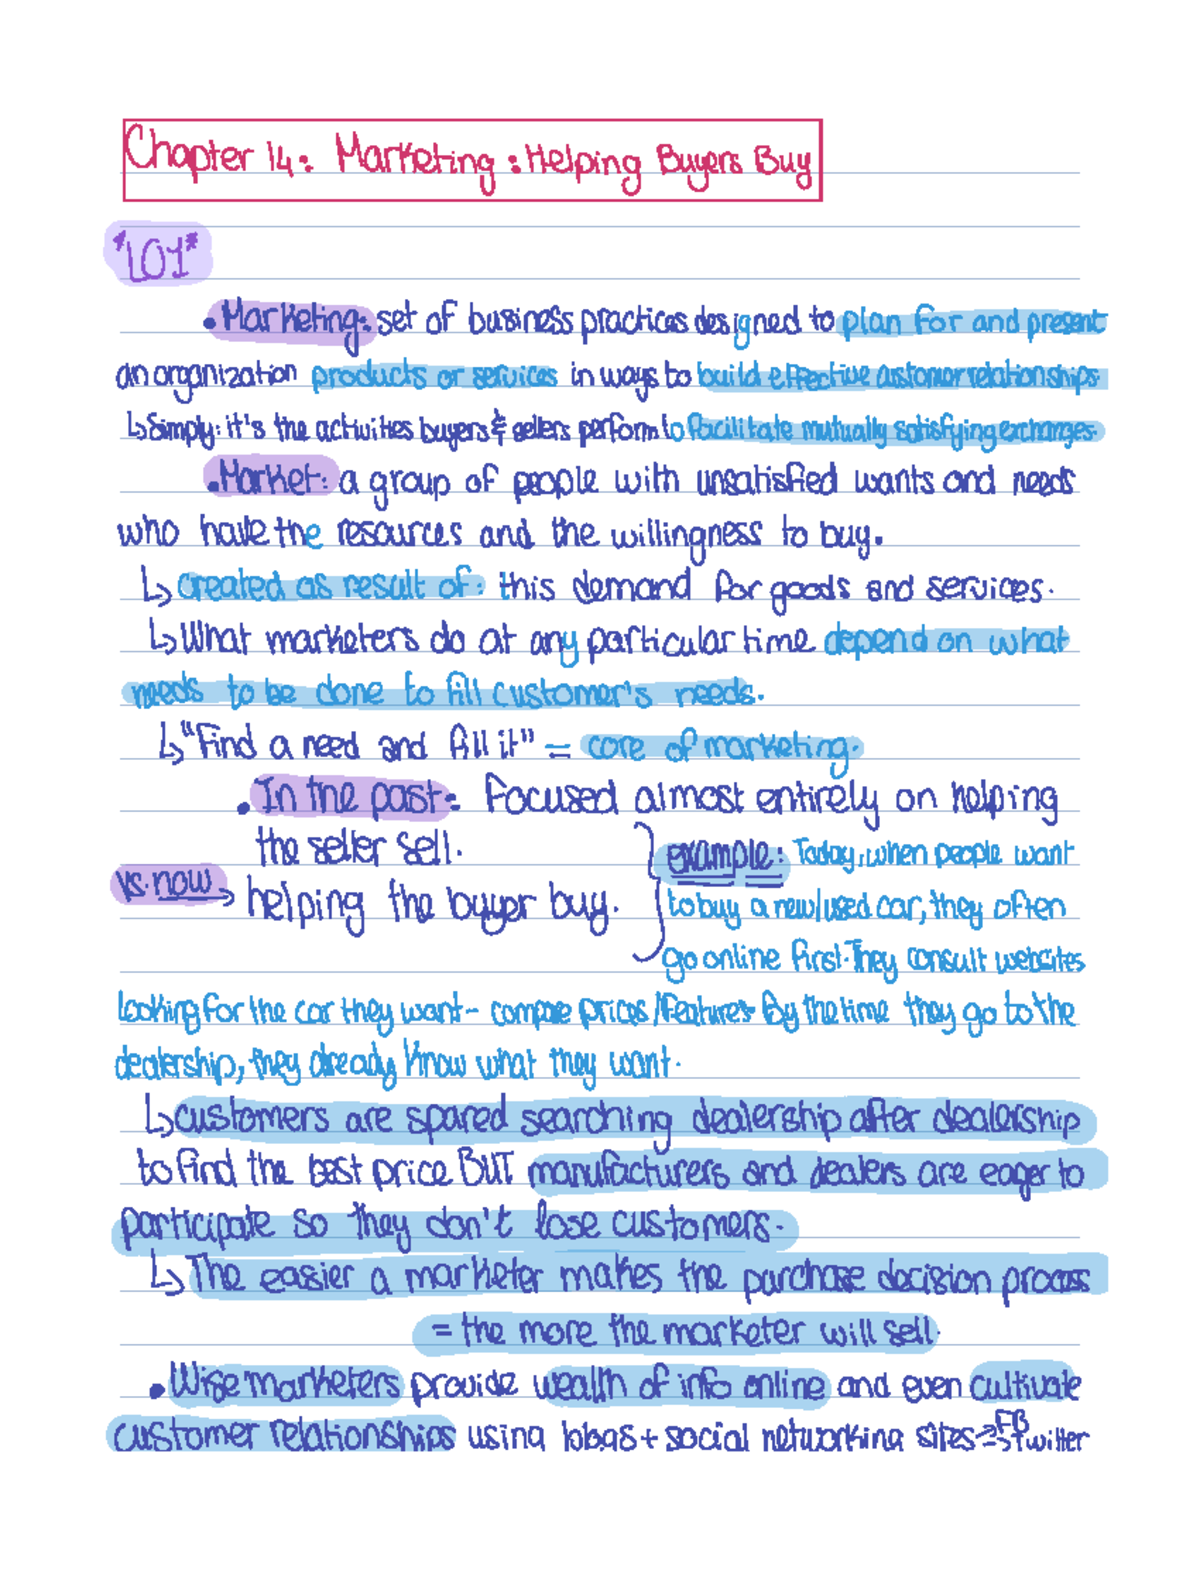 Chapter 14: Marketing: Helping Buyers Buy
*LO1*
• Marketing: set of business practices designed to plan for and present
an organization products or services in ways to build effective customer relationships.
↳ Simply: it's the activities buyers & sellers perform to facilitate mutually satisfying exchanges.
• Market: a group of people with unsatisfied wants and needs
who have the resources and the willingness to buy.
↳ created as result of: this demand for goods and services.
↳ What marketers do at any particular time depend on what
needs to be done to fill customer's needs.
↳ "Find a need and fill it" = core of marketing.
• In the past: Focused almost entirely on helping
the seller sell.
vs. now → helping the buyer buy.
example: Today, when people want
to buy a new/used car, they often
go online first. They consult websites
looking for the car they want - compare prices/features. By the time they go to the
dealership, they already know what they want.
↳ customers are spared searching dealership after dealership
to find the best price BUT manufacturers and dealers are eager to
participate so they don't lose customers.
↳ The easier a marketer makes the purchase decision process
= the more the marketer will sell.
• Wise marketers provide wealth of info online and even cultivate
customer relationships using blogs + social networking sites → FB → Twitter